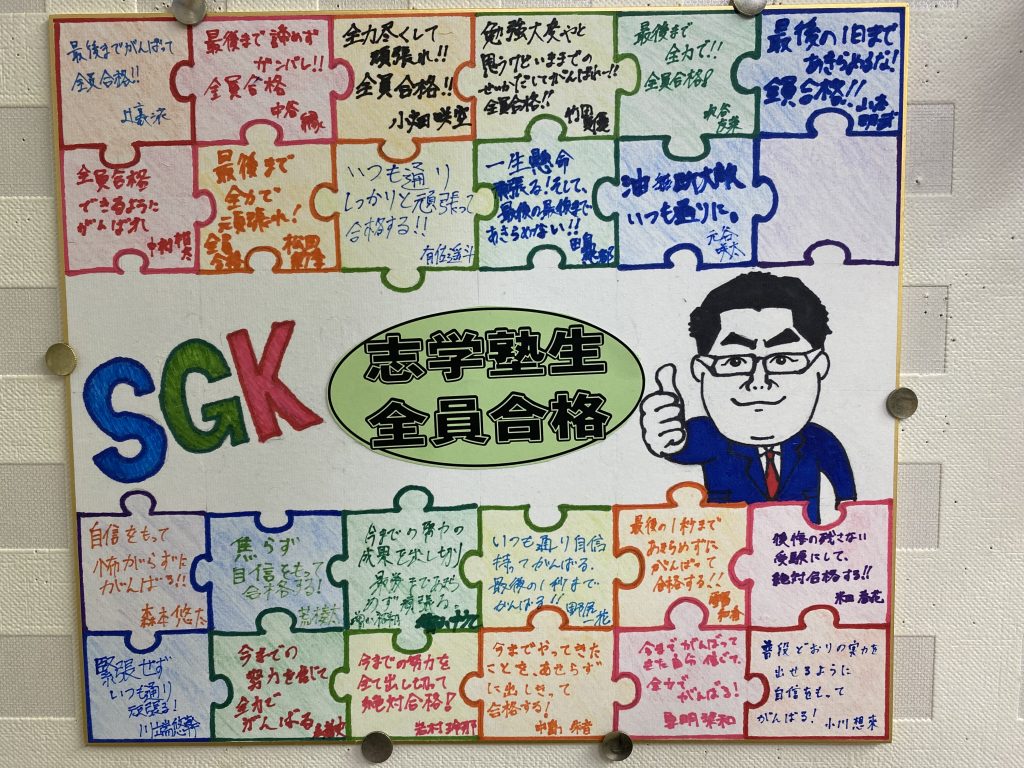 最後までがんばって
全員合格!!
最後まで諦めず
ガンバレ!!
全員合格
中谷
全力尽くして
頑張れ!!
全員合格!!
小畑 咲空
勉強大変やと
思うけどいままでの
せいかだしてがんばれー!!
全員合格!!
最後まで
全力で!!
全員合格!
水谷
最後の1日まで
あきらめるな!
全員合格!!
山本
全員合格
できるように
がんばれ
中村
最後まで
全力で
頑張れ!
全員
合格
松田
いつも通り
しっかりと頑張って
合格する!!
一生懸命
頑張る!そして、
最後の最後まで
あきらめない!!
油断大敵
いつも通りに。
元谷
咲太
SGK
志学塾生
全員合格
自信をもって
怖がらずに
がんばる!!
森本 悠太
焦らず
自信をもって
合格する!
今までの努力の
成果を出し切り
最後まであきら
めず頑張る。
いつも通り自信
持ってがんばる。
最後の1秒まで
がんばる!!
野尻
一花
最後の1秒まで
あきらめずに
がんばって
合格する!!
後悔の残さない
受験にして、
絶対合格する!!
米田
緊張せず
いつも通り
頑張る!
川端 悠幹
今までの
努力を信じて
全力で
がんばる
今までの努力を
全て出し切って
絶対合格!
岩村
今までやってきた
ことを、あせらず
に出しきって
合格する!
中島
今までがんばって
きた自分信じて、
全力で
がんばる!
普段どおりの実力を
出せるように
自信をもって
がんばる!
小川 想来